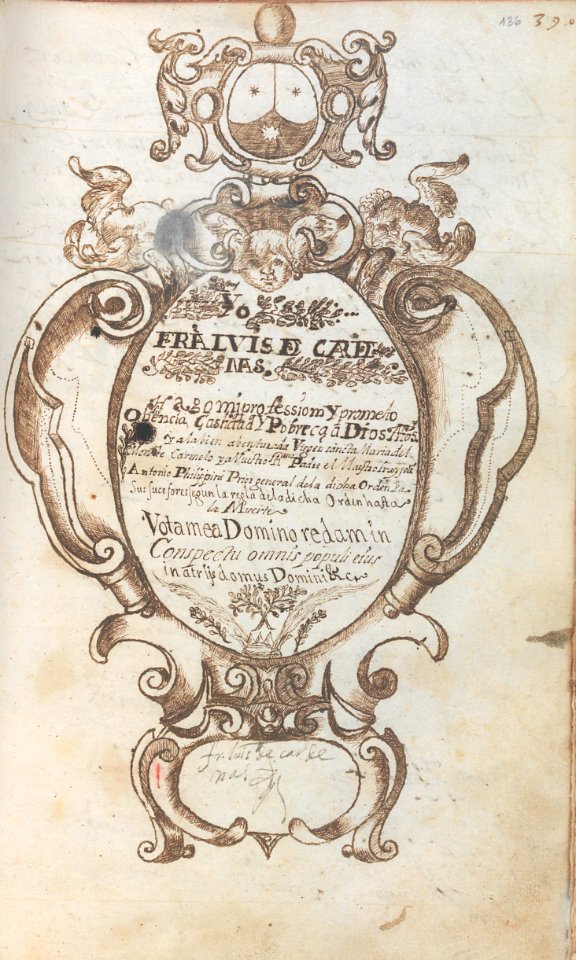 136 39
Yo
FRALVIS DE CARDE
NAS.
Hago mi profession y prometo
Obencia, Castidad Y Pobreça a Dios Nro S.
y a la bien abenturada Virgen sancta Maria del
Monte Carmelo y a Nuestro R.mo Padre el Maestro
Antonio Philippini Prior general de la dicha Orden I a
Sus sucesores segun la regla de la dicha Orden hasta
la Muerte
Vota mea Domino redam in
Conspectu omnis populi eius
in atrijs domus Domini &c
fr. luis de carde
nas